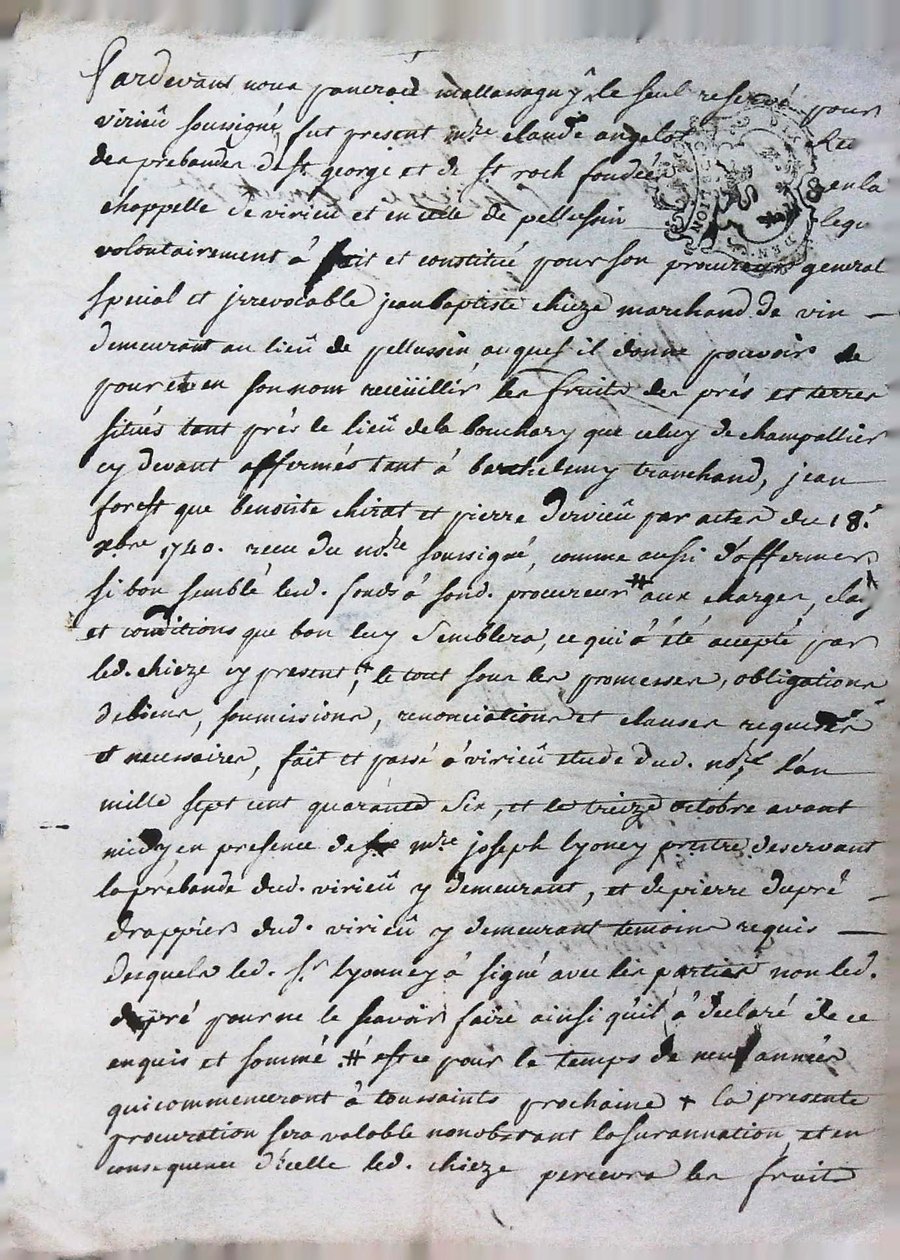 Pardevant nous pancrace mallassagny le seul reservé pour
virieû soussigné, fut present mre claude angelot
des prebandes de st george et de st roch fondées en la
chappelle de virieu et en celle de pellussin lequ
volontairement à fait et constitué pour son procureur general
special et jrrevocable jean baptiste chieze marchand de vin
demeurant au lieû de pellussin auquel il donne pouvoir de
pour et en son nom recëüillir les fruits des prés et terres
situés tant prés le lieû de la bouchary que celuy de champallier
cy devant affermés tant à barthelemy tranchand, jean
forest que benoite chirat et pierre dervieû par actes du 18.e
xbre 1740. recu du nore soussigné, comme aussi d'affermer
si bon semblé lesd. fonds à sond. procureur # aux charges, cla
et conditions que bon luy semblera, ce qui à été accepté par
led. chieze cy present +, le tout sous les promesses, obligations
de biens, soumissions, renonciations et clauses requises
et necessaires, fait et passé à virieû etude dud. nore, l'an
mille sept cent quarante six, et le treize octobre avant
midy en presence de mre joseph lyoney prêtre deservant
la prebande dud. virieû y demeurant, et de pierre dupré
drappier dud. virieû y demeurant temoins requis
desquels led. sr lyonney à signé avec les parties non led.
dupré pour ne le scavoir faire ainsi qu'il à declaré de ce
enquis et sommé # et ce pour le temps de neuf années
qui commenceront à toussaints prochaine + la presente
procuration sera valable nonobstant la surannation, et en
consequence d'icelle led. chieze percevra les fruits